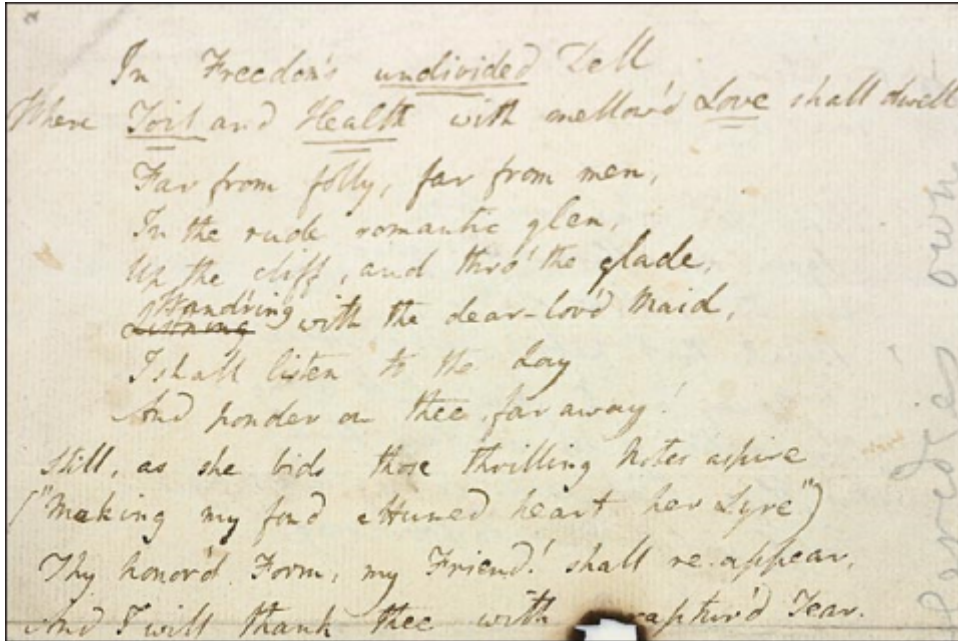 In Freedom's undivided Dell
Where Toil and Health with mellow'd Love shall dwell
Far from folly, far from men,
In the rude romantic glen,
Up the cliff, and thro' the glade,
Wand'ring with the dear-lov'd Maid,
I shall listen to the Lay
And ponder on thee far away!
Still, as she bids those thrilling Notes aspire
("Making my fond attuned heart her Lyre")
Thy honor'd Form, my Friend! shall re-appear,
And I will thank thee with raptur'd Tear.
own